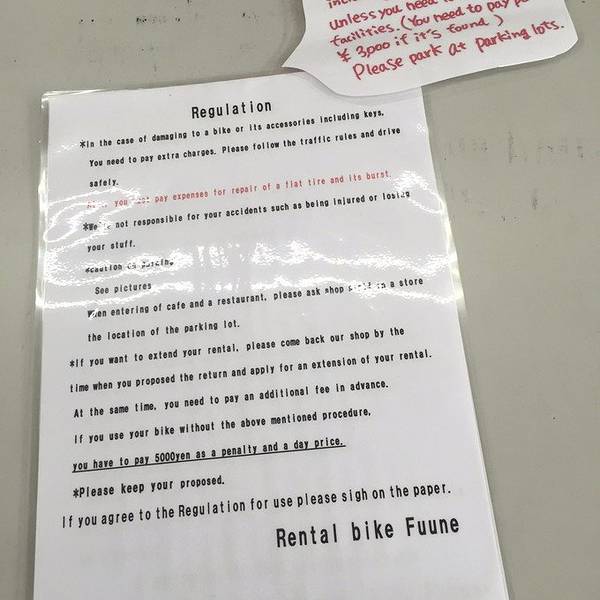 unless you need
facilities. (You need to pay
¥ 3,000 if it's found.)
Please park at parking lots.
Regulation
*In the case of damaging to a bike or its accessories including keys,
You need to pay extra charges. Please follow the traffic rules and drive
safely.
you must pay expenses for repair of a flat tire and its burst.
*We're not responsible for your accidents such as being injured or losing
your stuff.
*caution on parking
See pictures
When entering of cafe and a restaurant, please ask shop staff in a store
the location of the parking lot.
*If you want to extend your rental, please come back our shop by the
time when you proposed the return and apply for an extension of your rental.
At the same time, you need to pay an additional fee in advance.
If you use your bike without the above mentioned procedure,
you have to pay 5000yen as a penalty and a day price.
*Please keep your proposed.
If you agree to the Regulation for use please sigh on the paper.
Rental bike Fuune